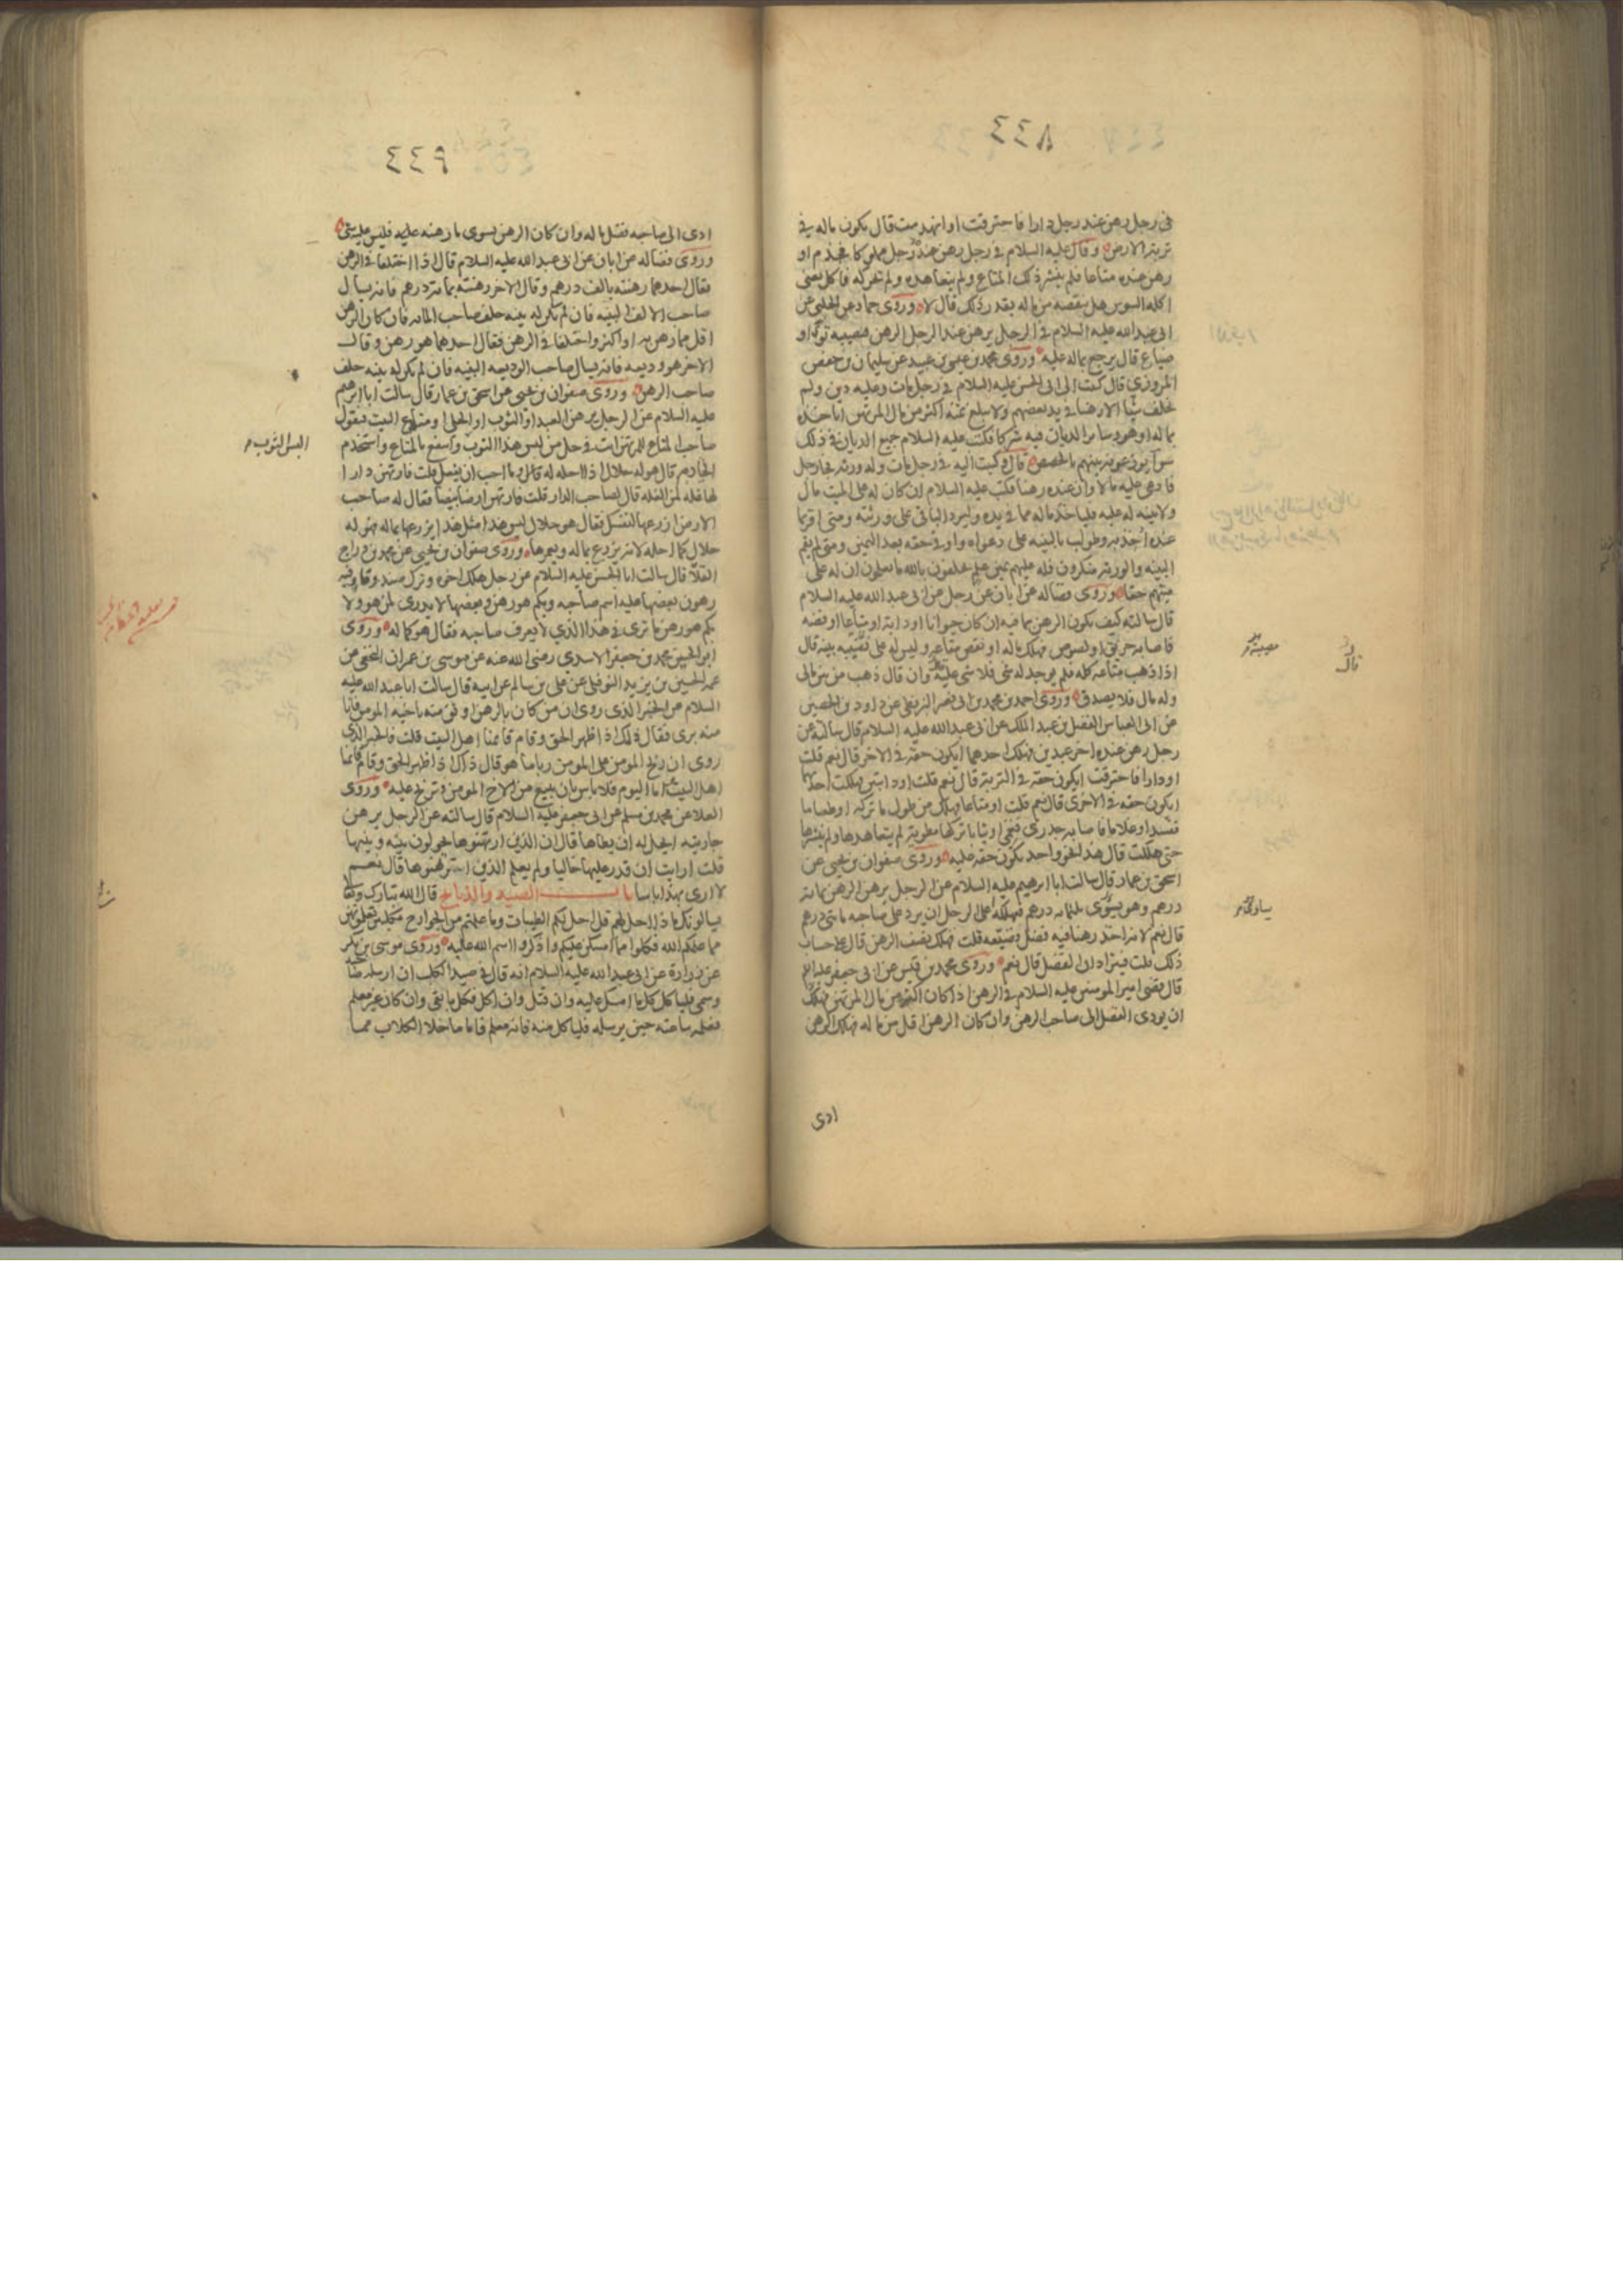 ٤٤٨
في رجل رهن عند رجل دارا فاحترقت او انهدمت قال يكون ماله في
تربة الارض وقال عليه السلام في رجل رهن عند رجل مملوكا فجذم او
رهن عنده متاعا فلم ينشر ذلك المتاع ولم يتعاهده ولم يحركه فاكل يعني
اكله السوس هل ينقصه من ماله بقدر ذلك قال لا وروى حماد عن الحلبي عن
ابي عبد الله عليه السلام في الرجل يرهن عند الرجل الرهن فيصيبه توى او
ضياع قال يرجع بماله عليه وروى محمد بن عيسى بن عبيد عن سليمان بن حفص
المروزي قال كتبت الى ابي الحسن عليه السلام في رجل مات وعليه دين ولم
يخلف شيئا الا رهنا في يد بعضهم ولا يبلغ ثمنه اكثر من مال المرتهن اياخذه
بماله او هو وساير الديان فيه شركا فكتب عليه السلام جميع الديان في ذلك
سوا يوزعونه بينهم بالحصص قال وكتبت اليه في رجل مات وله ورثة فجا رجل
فادعى عليه مالا وان عنده رهنا فكتب عليه السلام ان كان له على الميت مال
ولا بينة له عليه فلياخذ ماله مما في يده وليرد الباقي على ورثته ومتى اقر بما
عنده اخذ به وطولب بالبينة على دعواه واوفي حقه بعد اليمين ومتى لم يقم
البينة والورثة منكرون فله عليهم يمين علم يحلفون بالله ما يعلمون ان له على
ميتهم حقا وروى فضاله عن ابان عن رجل عن ابي عبد الله عليه السلام
قال سالته كيف يكون الرهن بما فيه ان كان حيوانا او دابة او متاعا او فضه
فاصابه حريق او لصوص فهلك ماله او نقص متاعه وليس له على مصيبته بينة قال
اذا ذهب متاعه كله فلم يوجد له شي فلا شي عليه وان قال ذهب من بين مالي
وله مال فلا يصدق وروى احمد بن محمد بن ابي نصر البزنطي عن داود بن الحصين
عن ابي العباس الفضل بن عبد الملك عن ابي عبد الله عليه السلام قال سالته عن
رجل رهن عنده اخر عبدين فهلك احدهما ايكون حقه في الاخر قال نعم قلت
او دارا فاحترقت ايكون حقه في التربة قال نعم قلت او دابتين فهلكت احدهما
ايكون حقه في الاخرى قال نعم قلت او متاعا فهلك من طول ما تركه او طعاما
ففسد او غلاما فاصابه جدري فعمي او ثيابا تركها مطوية لم يتعاهدها ولم ينشرها
حتى هلكت قال هذا نحو واحد يكون حقه عليه وروى صفوان بن يحيى عن
اسحق بن عمار قال سالت ابا ابرهيم عليه السلام عن الرجل يرهن الرهن بماية
درهم وهو يسوى ثلثماية درهم فيهلكه اعلى الرجل ان يرد على صاحبه مايتي درهم
قال نعم لانه اخذ رهنا فيه فضل وضيعه قلت فهلك نصف الرهن قال على حساب
ذلك قلت فيترادان الفضل قال نعم وروى محمد بن قيس عن ابي جعفر عليه السلام
قال قضى امير المومنين عليه السلام في الرهن اذا كان اكثر من مال المرتهن فهلك
ان يودي الفضل الى صاحب الرهن وان كان الرهن اقل من ماله فهلك الرهن
ادى
قال
٤٤٩
ادى الى صاحبه فضل ماله وان كان الرهن يسوى ما رهنه عليه فليس عليه شي
وروى فضاله عن ابان عن ابي عبد الله عليه السلام قال اذا اختلفا في الرهن
فقال احدهما رهنته بالف درهم وقال الاخر رهنته بماية درهم فانه يسال
صاحب الالف البينه فان لم يكن له بينه حلف صاحب الماية فان كان الرهن
اقل مما رهن به او اكثر واختلفا في الرهن فقال احدهما هو رهن وقال
الاخر هو وديعه فانه يسال صاحب الوديعه البينه فان لم يكن له بينه حلف
صاحب الرهن وروى صفوان بن يحيى عن اسحق بن عمار قال سالت ابا ابرهيم
عليه السلام عن الرجل يرهن العبد او الثوب او الحلي او متاع البيت فيقول
صاحب المتاع للمرتهن انت في حل من لبس هذا الثوب وانتفع بالمتاع واستخدم
الخادم قال هو له حلال اذا احله له وما احب ان يفعل قلت فارتهن دارا
لها غله لمن الغله قال لصاحب الدار قلت فارتهن ارضا بيضا فقال له صاحب
الارض ازرعها لنفسك فقال هو حلال ليس هذا مثل هذا يزرعها بماله فهو له
حلال كما احله لانه يزرع بماله ويعمرها وروى صفوان بن يحيى عن محمد بن رباح
القلا قال سالت ابا الحسن عليه السلام عن رجل هلك اخوه وترك صندوقا فيه
رهون بعضها عليه اسم صاحبه وبكم هو رهن وبعضها لا يدرى لمن هو ولا
بكم هو رهن ما ترى في هذا الذي لا يعرف صاحبه فقال هو كماله وروى
ابو الحسين محمد بن جعفر الاسدي رضي الله عنه عن موسى بن عمران النخعي عن
عمه الحسين بن يزيد النوفلي عن علي بن سالم عن ابيه قال سالت ابا عبد الله عليه
السلام عن الخبر الذي روى ان من كان بالرهن اوثق منه باخيه المومن فانا
منه بري فقال ذلك اذا ظهر الحق وقام قايمنا اهل البيت قلت فالخبر الذي
روى ان ربح المومن على المومن ربا ما هو قال ذاك اذا ظهر الحق وقام قايمنا
اهل البيت اما اليوم فلا باس بان يبيع من الاخ المومن ويربح عليه وروى
العلا عن محمد بن مسلم عن ابي جعفر عليه السلام قال سالته عن الرجل يرهن
جاريته ايحل له ان يطاها قال ان الذين ارتهنوها يحولون بينه وبينها
قلت ارايت ان قدر عليها خاليا ولم يعلم الذين ارتهنوها قال نعم
لا ارى بهذا باسا باب الصيد والذبايح قال الله تبارك وتعالى
يسالونك ماذا احل لهم قل احل لكم الطيبات وما علمتم من الجوارح مكلبين تعلمونهن
مما علمكم الله فكلوا مما امسكن عليكم واذكروا اسم الله عليه وروى موسى بن بكر
عن زرارة عن ابي عبد الله عليه السلام انه قال في صيد الكلب ان ارسله صاحبه
وسمى فلياكل كل ما امسك عليه وان قتل وان اكل فكل ما بقي وان كان غير معلم
فعلمه ساعته حين يرسله فلياكل منه فانه معلم فاما ما خلا الكلاب مما
البس الثوب